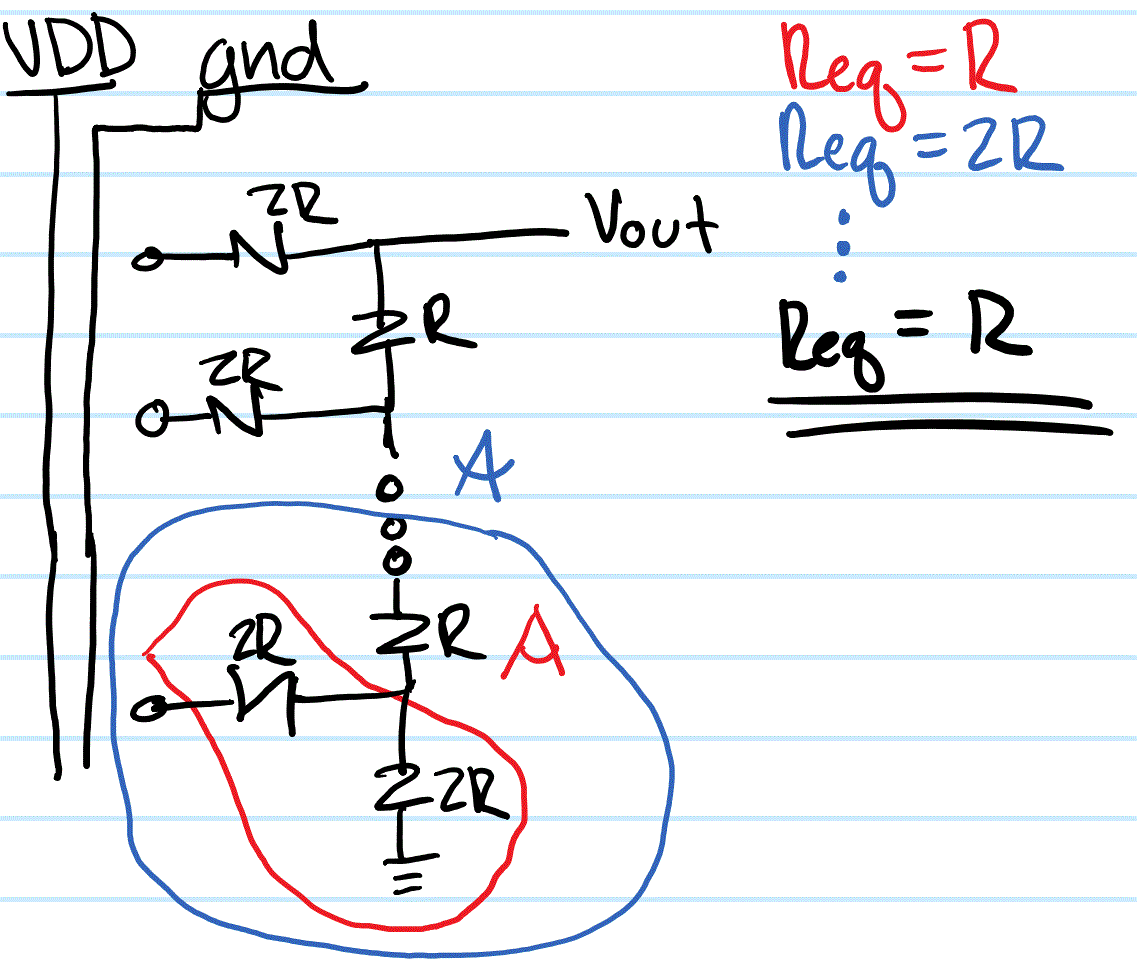 VDD gnd
Req = R
Req = 2R
Req = R
2R
Vout
R
2R
A
R
A
2R
2R